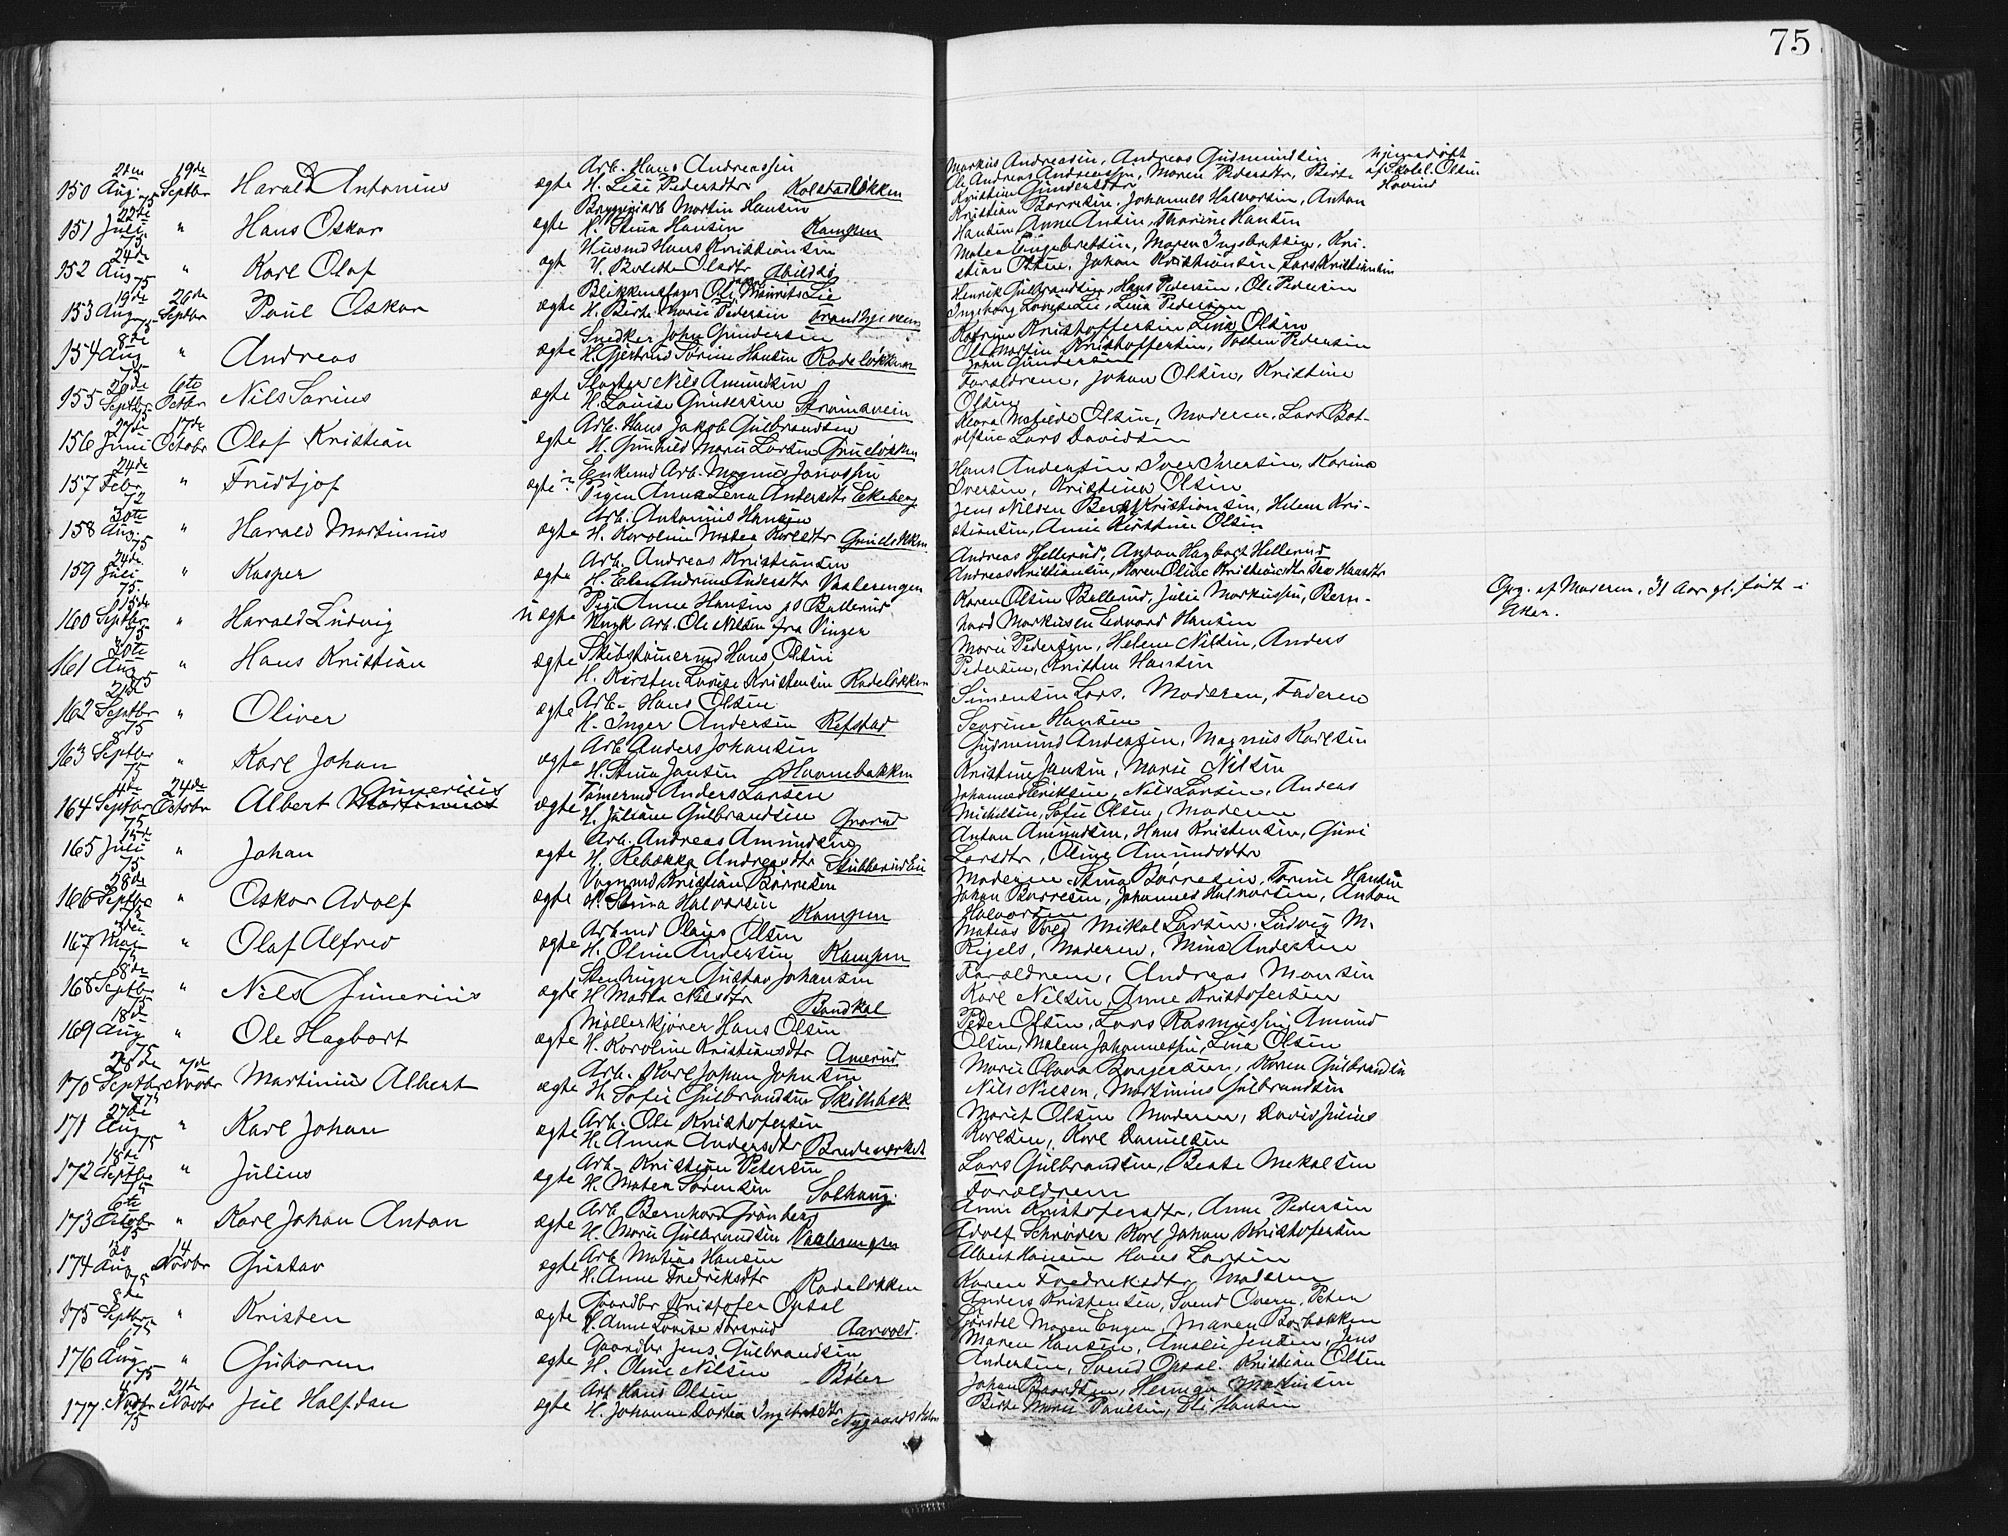 75
21de 19de
150 Aug. Septbr Harald Antonius ægte Arb. Hans Andreassen
H. Lise Pedersdtr Kolstadløkken
Markus Andreasen, Andreas Gudmundsen
Ole Andreas Andreassen, Maren Pedersdtr, Berte
Kristian Gundersdtr
hjemmedøbt
af Skolel. Olsen
Hovind
75
22de
151 Juli " Hans Oskar ægte Bryggeriarb Martin Hansen
H. Stina Hansen Kampen
Kristian Borresen, Johannes Halvorsen, Anton
Hansen Anne Antsen, Thorine Hansen
75
24de
152 Aug " Karl Olaf ægt Husmd Hans Kristiansen
H. Bolette Olsdtr Abildsø
Matea Engebretsen, Maren Ingebretsen, Kri-
stian Olsen, Johan Kristiansen Lars Kristiansen
75
19de 26de
153 Aug Septbr Paul Oskar ægte Blikkenslager Ole Mauritz Lie
H. Berte Marie Pedersen
Henrik Gulbrandsen, Hans Pedersen, Ole Pedersen
Ingeborg Lovise Lie, Lina Pedersen
75
8de
154 Aug " Andreas ægte Snedker John Gundersen
H. Gjertrud Sørine Hansen Rodeløkken
Katrine Kristoffersen Lina Olsen
Ole Martin Kristoffersen, Torsten Pedersen
John Gundersen
75
6te
155 Septbr Octbr Nils Sarius ægte Slagter Nils Amundsen
H. Louise Gundersen Strømsveien
Forældrene, Johan Olsen, Kristine
Olsen
75
27de 17de
156 Juni Octobr Olaf Kristian ægte Arb. Hans Jakob Gulbrandsen
H. Gunhild Marie Larsen Grueløkken
Klara Matilde Olsen, Moderen, Lars Bot-
olfsen Lars Davidsen
24de
157 Febr " Fridtjof ægte Enkemd Arb. Magnus Jonassen
Pigen Anna Lena Andersdtr Ekeberg
Hans Andersen, Iver Iversen, Karina
Iversen, Kristina Olsen
72
30te
158 Aug " Harald Martinius ægte Arb. Antonius Hansen
H. Karoline Matea Karlsdtr Grueløkken
Jens Nilsen Kristiansen, Helene Kri-
stiansen, Anne Kirstine Olsen
75
24de
159 Juli " Kasper ægte Arb. Andreas Kristiansen
H. Elen Andrine Andersdtr Vaalerengen
Andreas Hellerud, Anton Hagbart Hellerud
Andreas Kristiansen, Karen Oline Kristiansdtr Hansdtr
75
15de
160 Septbr " Harald Ludvig uægte Pige Anne Hansen på Ballerud
Ungk Arb. Ole Nilsen fra Vinger
Karen Olsen Ballerud, Julie Markussen, Bern-
hard Markusen Edvard Hansen
Opg. af Moderen, 31 Aar gl. født i
Aker.
75
30te
161 Aug " Hans Kristian ægte Skibstømermd Hans Olsen
H. Kirsten Lovise Kristensen Rodeløkken
Marie Pedersen, Helene Nilsen, Anders
Pedersen, Kristen Hansen
75
21de
162 Septbr " Oliver ægte Arb. Hans Olsen
H. Inger Andersen Refstad
Simensen Lars, Moderen, Faderen
Severine Hansen
75
8
163 Septbr " Karl Johan ægte Arb Anders Johansen
H. Stina Jansen Havnebakken
Gudmund Andersen, Magnus Karlsen
Kristine Jansen, Marie Nilsen
75
4de 24de Gunerius
164 Septbr Octobr Albert Martinius ægte Tømermd Anders Larsen
H. Juliane Gulbrandsen Grorud
Johannes Eriksen, Nils Larsen, Anders
Mikelsen, Sofie Olsen, Moderen
75
15de
165 Juli " Johan ægte Arb. Andreas Amundsen
H. Rebekka Andreasdtr Stubberudeie
Anton Amundsen, Hans Kristensen, Guri
Larsdtr, Oline Amundsdtr
75
28de
166 Septbr " Oskar Adolf ægte Vognmd Kristian Børresen
H. Stina Halvorsen Kampen
Moderen, Stina Børresen, Torine Hansen
Johan Borresen, Johannes Halvorsen, Anton
Halvorsen
167 Mai " Olaf Alfred ægte Arbmd Olaus Olsen
H. Oline Andersen Kampen
Matias Mikal Larsen, Ludvig M.
Rigels, Moderen, Mina Andersen
75
8de
168 Septbr " Nils Gunerius ægte Stenhugger Gustav Johansen
H Matea Nilsdtr Bandkal
Forældrene, Andreas Monsen
Karl Nilsen, Anne Kristofersen
75
18de
169 Aug " Ole Hagbart ægte Møllerkjører Hans Olsen
H. Karoline Kristiansdtr Amerud
Peder Olsen, Lars Rasmussen, Amund
Olsen, Malene Johannessen, Lina Olsen
75
28de
170 Septbr Novbr Martinius Albert ægte Arb. Karl Johan Johnsen
H. Sofie Gulbrandsen Skilbæk
Marie Olava Borgersen, Karen Gulbrandsen
Nils Nilsen, Martinius Gulbrandsen
75
27de
171 Aug " Karl Johan ægte Arb. Ole Kristofersen
H. Anna Andersdtr Bredeverket
Marit Olsen Moderen, David Julius
Karlsen, Karl Danielsen
75
18de
172 Septbr " Julius ægte Arb. Kristian Petersen
H. Matea Sørensen Solhaug.
Lars Gulbrandsen, Beate Mekalsen
Forældrene
75
6te
173 Octobr " Karl Johan Anton ægte Arb. Bernhard Grønberg
H. Marie Gulbrandsen Vaalerengen
Anne Kristofersdtr, Anne Pedersen
Adolf Schrøder Karl Johan Kristofersen
75
30 14
174 Aug Novbr Gustav ægte Arb Matias Hansen
H. Anne Fredriksdtr Rodeløkken
Albert Hansen Hans Larsen
Karen Fredriksdtr Moderen
75
8de
175 Septbr " Kristen ægte Gaardbr Kristofer Opsal
H. Anne Lovise Aarvold.
Anders Kristensen, Svend Overn, Peter
Maren Engen, Maren Bosbakken
75
6
176 Aug " Guttorm ægte Gaardbr Jens Gulbrandsen
H. Oline Nilsen Bøler
Maren Hansen, Amalie Jensen, Jens
Andersen, Svend Opsal, Kristian Olsen
75
21de
177 Novbr Novbr Jul Halfdan ægte Arb Hans Olsen
H. Johanne Dortea Ingebretsdtr Nygaardsholm
Johan Baardsen, Herman Martinsen
Berte Marie Paulsen, Eli Hansen
75